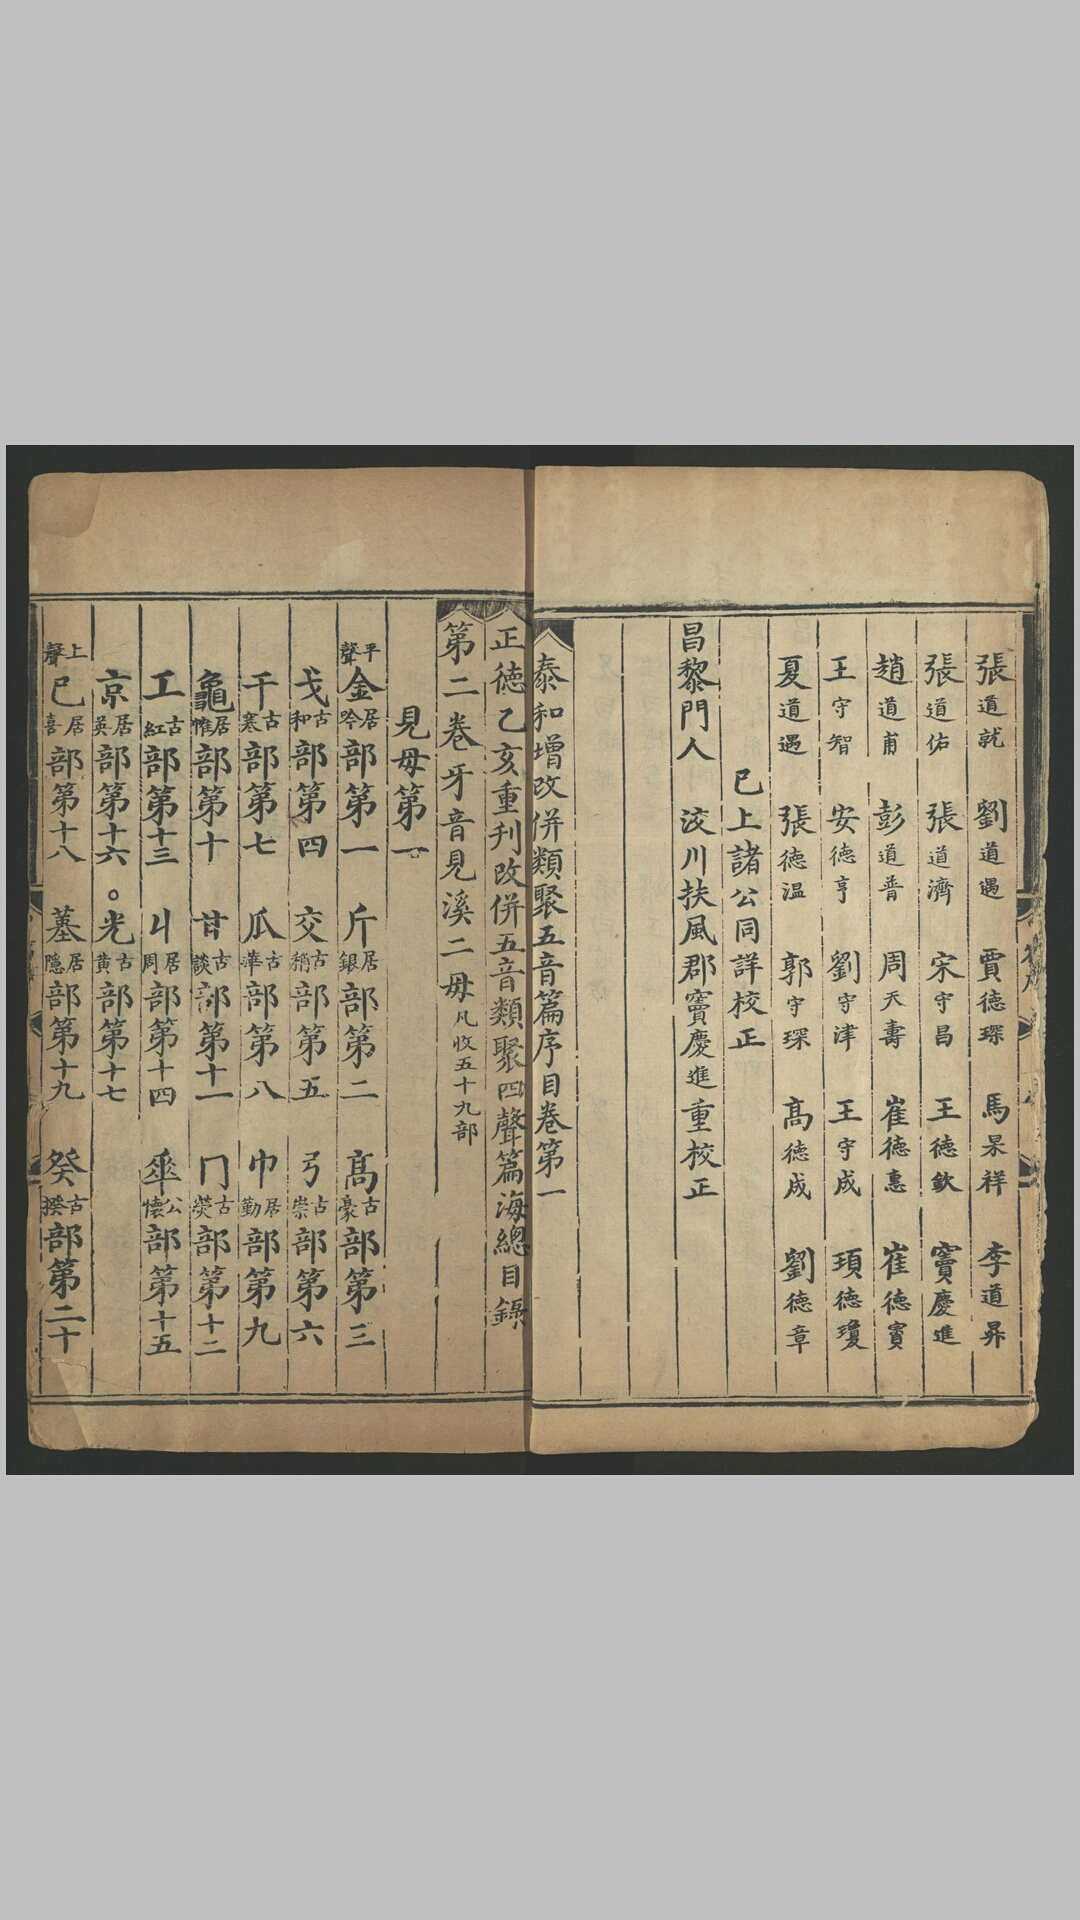 張道就 劉道遇 賈德琛 馬杲祥 李道昇
張道佑 張道濟 宋守昌 王德欽 竇慶進
趙道甫 彭道普 周天壽 崔德惠 崔德寶
王守智 安德亨 劉守津 王守成 頊德瓊
夏道遇 張德溫 郭守琛 髙德成 劉德章
已上諸公同詳校正
昌黎門人 洨川扶風郡竇慶進重校正
泰和增改併類聚五音篇序目卷第一
正德乙亥重刊改併五音類聚四聲篇海總目錄
第二卷牙音見溪二毋凡收五十九部
見毋第一
平聲金居吟部第一 斤居銀部第二 髙古豪部第三
戈古和部第四 交古稍部第五 弓古崇部第六
干古寒部第七 瓜古華部第八 巾居勤部第九
龜居惟部第十 甘古談部第十一 冂古熒部第十二
工古紅部第十三 丩居周部第十四 𠦬公懷部第十五
京居英部第十六 ○光古黃部第十七
上聲己居喜部第十八 居隱部第十九 癸古揆部第二十